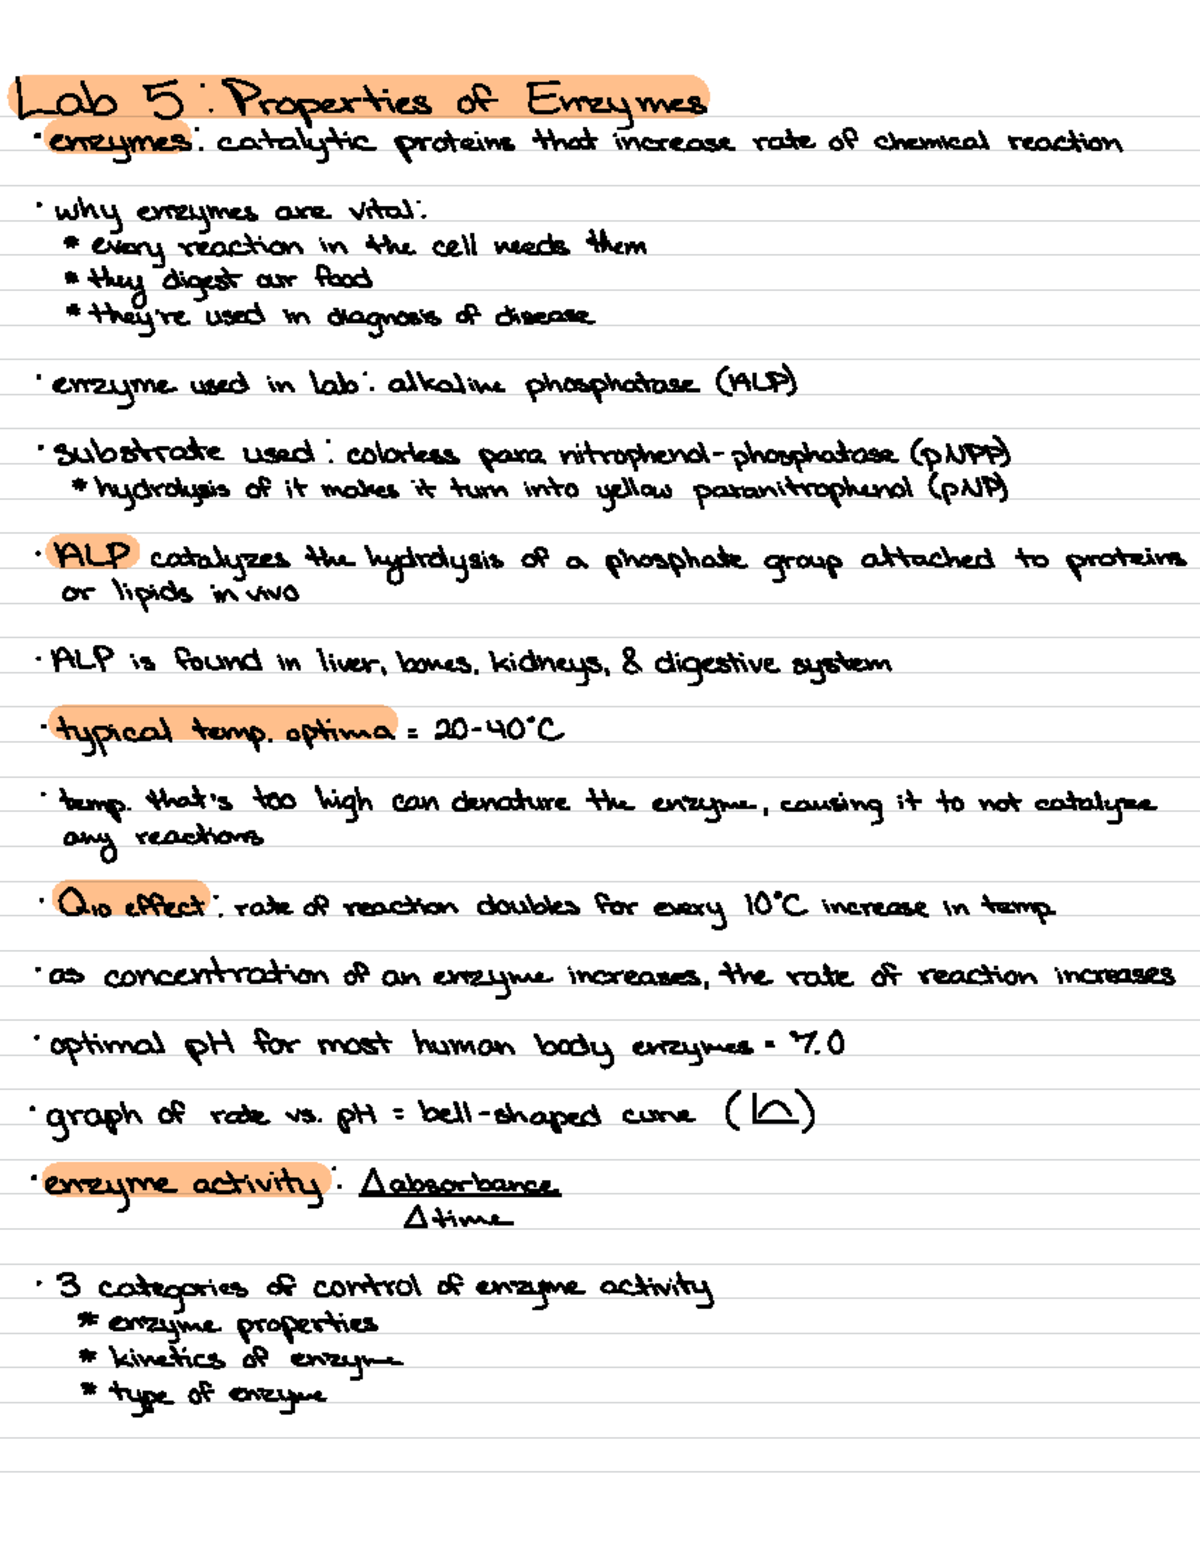 Lab 5: Properties of Enzymes
· enzymes: catalytic proteins that increase rate of chemical reaction
· why enzymes are vital:
* every reaction in the cell needs them
* they digest our food
* they're used in diagnosis of disease
· enzyme used in lab: alkaline phosphatase (ALP)
· substrate used: colorless para nitrophenol-phosphatase (pNPP)
* hydrolysis of it makes it turn into yellow paranitrophenol (pNP)
· ALP catalyzes the hydrolysis of a phosphate group attached to proteins
or lipids in vivo
· ALP is found in liver, bones, kidneys, & digestive system
· typical temp. optima = 20-40°C
· temp. that's too high can denature the enzyme, causing it to not catalyze
any reactions
· Q₁₀ effect: rate of reaction doubles for every 10°C increase in temp
· as concentration of an enzyme increases, the rate of reaction increases
· optimal pH for most human body enzymes = 7.0
· graph of rate vs. pH = bell-shaped curve ( )
· enzyme activity: Δabsorbance
Δtime
· 3 categories of control of enzyme activity
* enzyme properties
* kinetics of enzyme
* type of enzyme